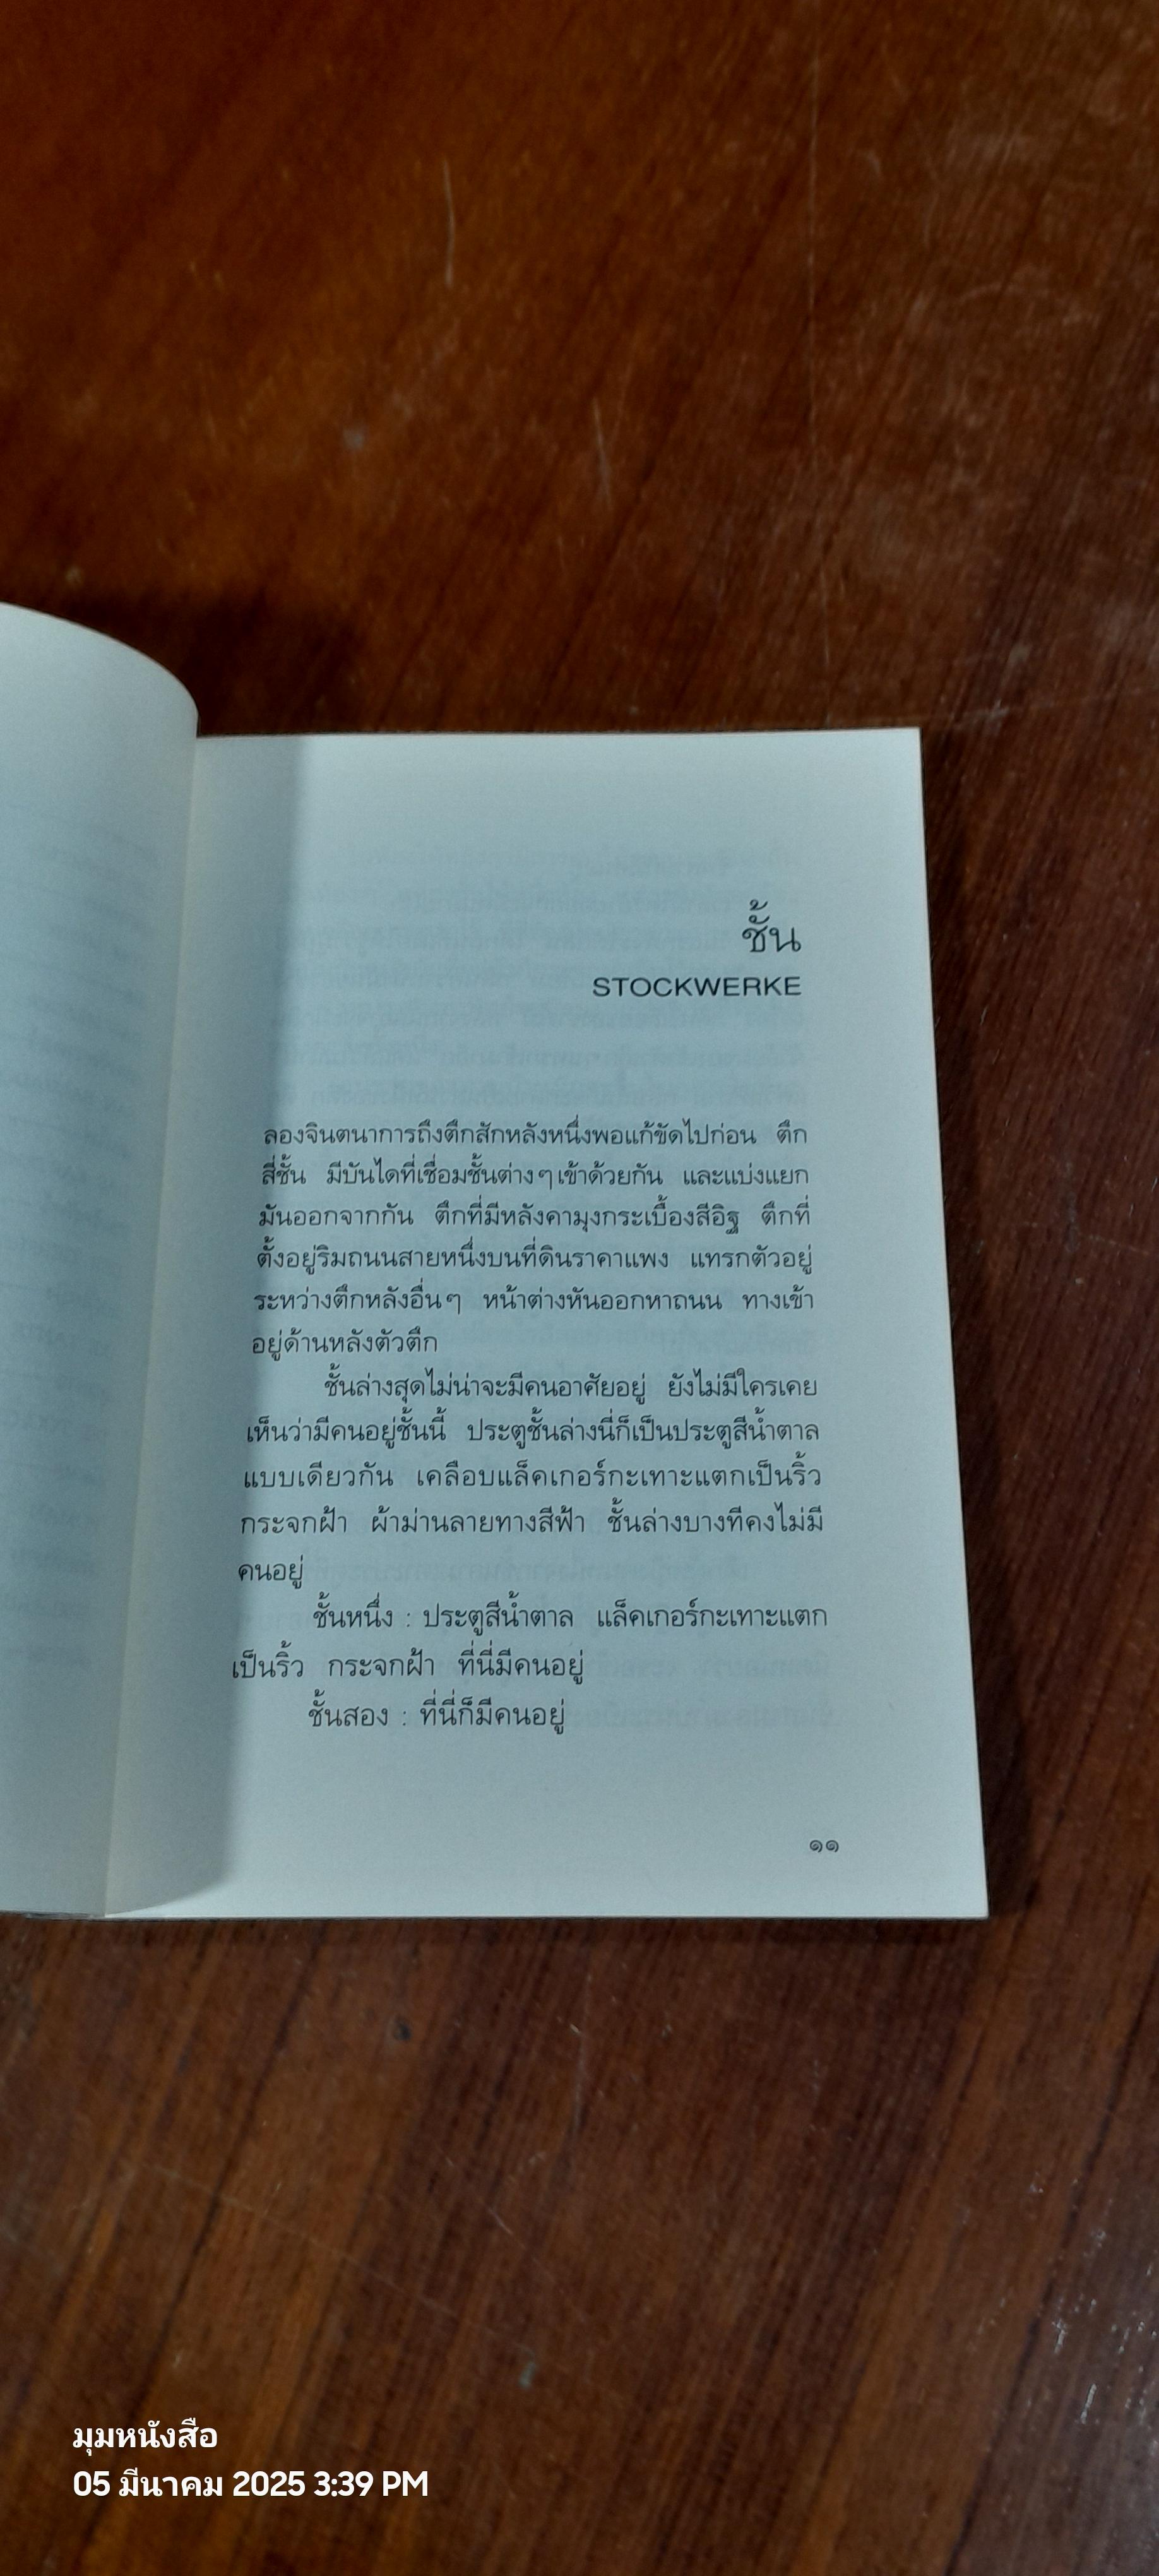 ชั้น
STOCKWERKE
ลองจินตนาการถึงตึกสักหลังหนึ่งพอแก้ขัดไปก่อน ตึก
สี่ชั้น มีบันไดที่เชื่อมชั้นต่างๆ เข้าด้วยกัน และแบ่งแยก
มันออกจากกัน ตึกที่มีหลังคามุงกระเบื้องสีอิฐ ตึกที่
ตั้งอยู่ริมถนนสายหนึ่งบนที่ดินราคาแพง แทรกตัวอยู่
ระหว่างตึกหลังอื่นๆ หน้าต่างหันออกหาถนน ทางเข้า
อยู่ด้านหลังตัวตึก
ชั้นล่างสุดไม่น่าจะมีคนอาศัยอยู่ ยังไม่มีใครเคย
เห็นว่ามีคนอยู่ชั้นนี้ ประตูชั้นล่างนี่ก็เป็นประตูสีน้ำตาล
แบบเดียวกัน เคลือบแล็คเกอร์กะเทาะแตกเป็นริ้ว
กระจกฝ้า ผ้าม่านลายทางสีฟ้า ชั้นล่างบางทีคงไม่มี
คนอยู่
ชั้นหนึ่ง : ประตูสีน้ำตาล แล็คเกอร์กะเทาะแตก
เป็นริ้ว กระจกฝ้า ที่นี่มีคนอยู่
ชั้นสอง : ที่นี่ก็มีคนอยู่
๑๑
มุมหนังสือ
05 มีนาคม 2025 3:39 PM